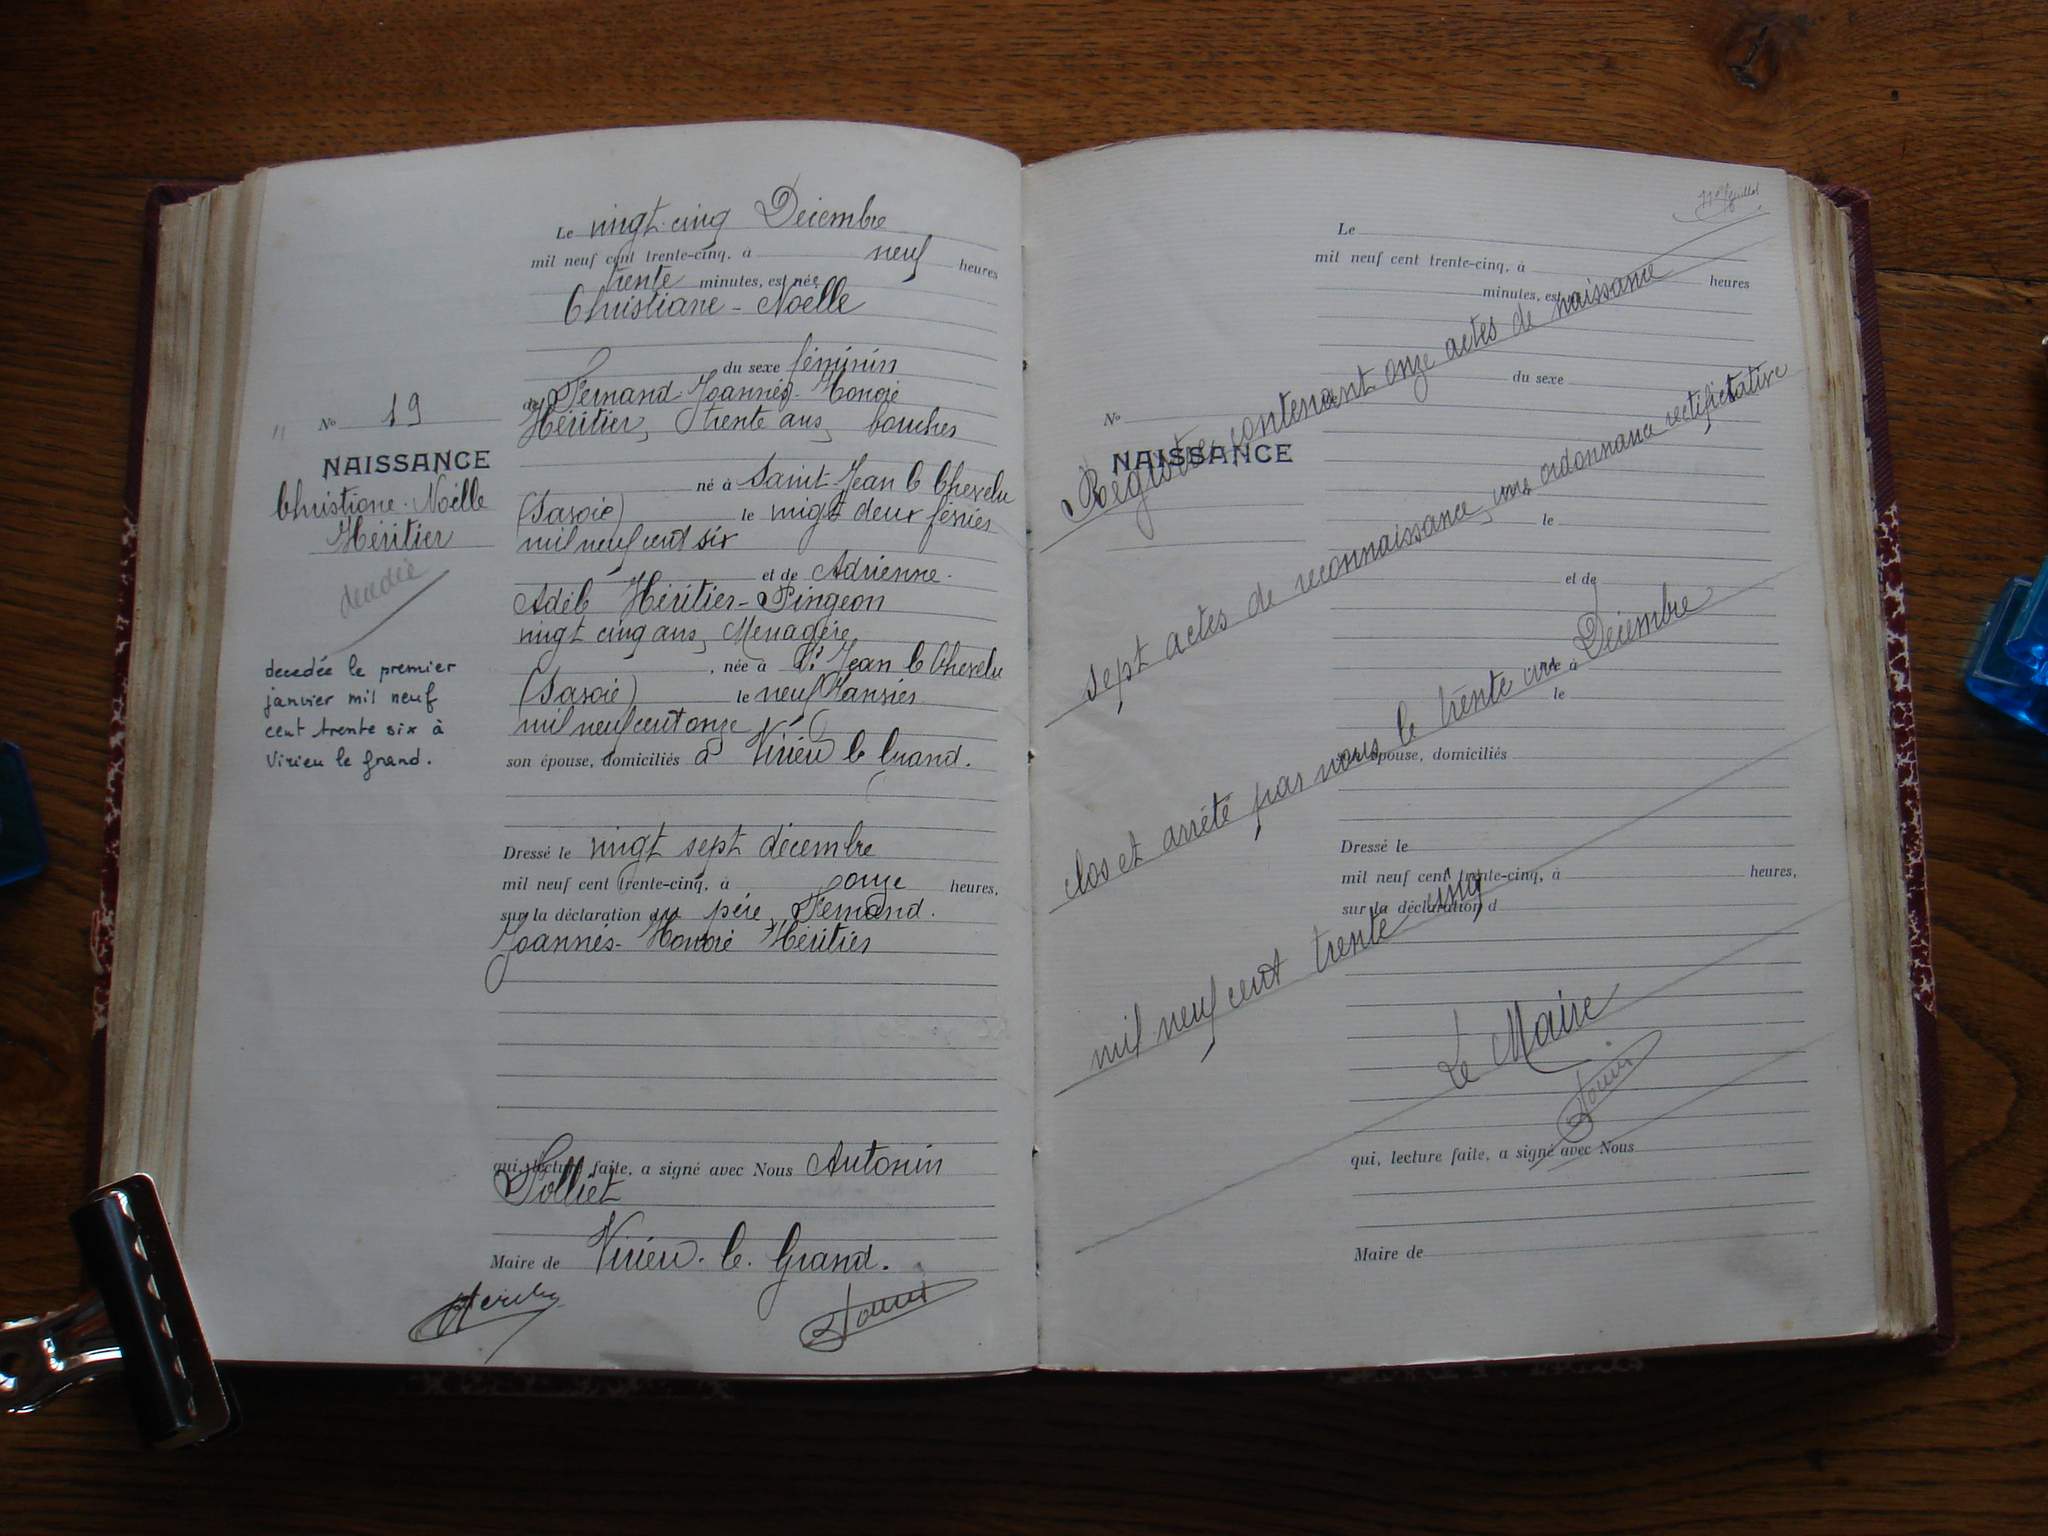 Le vingt-cinq Décembre
mil neuf cent trente-cinq, à neuf heures
trente minutes, est née
Christiane - Noëlle
du sexe féminin
de Fernand-Joannès-Honoré
Héritier, trente ans,
né à Saint Jean le Chevelu
(Savoie) le vingt deux février
mil neuf cent six
et de Adrienne-
Adèle Héritier-Pingeon
vingt cinq ans, Menagère
, née à St Jean le Chevelu
(Savoie) le neuf Janvier
mil neuf cent onze
son épouse, domiciliés à Virieu le Grand.
Dressé le vingt sept décembre
mil neuf cent trente-cinq, à onze heures,
sur la déclaration du père, Fernand-
Joannès-Honoré Héritier
qui, lecture faite, a signé avec Nous Antonin
Maire de Virieu-le-Grand.
No 19
NAISSANCE
Christiane-Noëlle
Héritier
decedée
decedée le premier
janvier mil neuf
cent trente six à
Virieu le Grand.
Le
mil neuf cent trente-cinq, à heures
minutes, est
du sexe
No
NAISSANCE
le
et de
née à
le
son épouse, domiciliés
Dressé le
mil neuf cent trente-cinq, à heures,
sur la déclaration d
qui, lecture faite, a signé avec Nous
Maire de
Registre contenant onze actes de naissance
sept actes de reconnaissance, une ordonnance rectificative
clos et arrêté par nous le trente un Décembre
mil neuf cent trente cinq
Le Maire